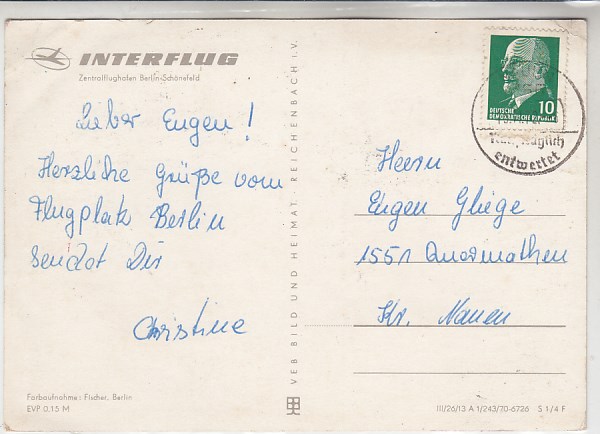 INTERFLUG
Zentralflughafen Berlin-Schönefeld
Lieber Eugen!
Herzliche Grüße vom
Flugplatz Berlin
sendet Dir
Christine
Farbaufnahme: Fischer, Berlin
EVP 0,15 M
VEB BILD UND HEIMAT, REICHENBACH I. V.
10
DEUTSCHE
DEMOKRATISCHE REPUBLIK
entwertet
Herrn
Eugen Gliege
1551 Quermathen
Kr. Nauen
III/26/13 A 1/243/70-6726 S 1/4 F